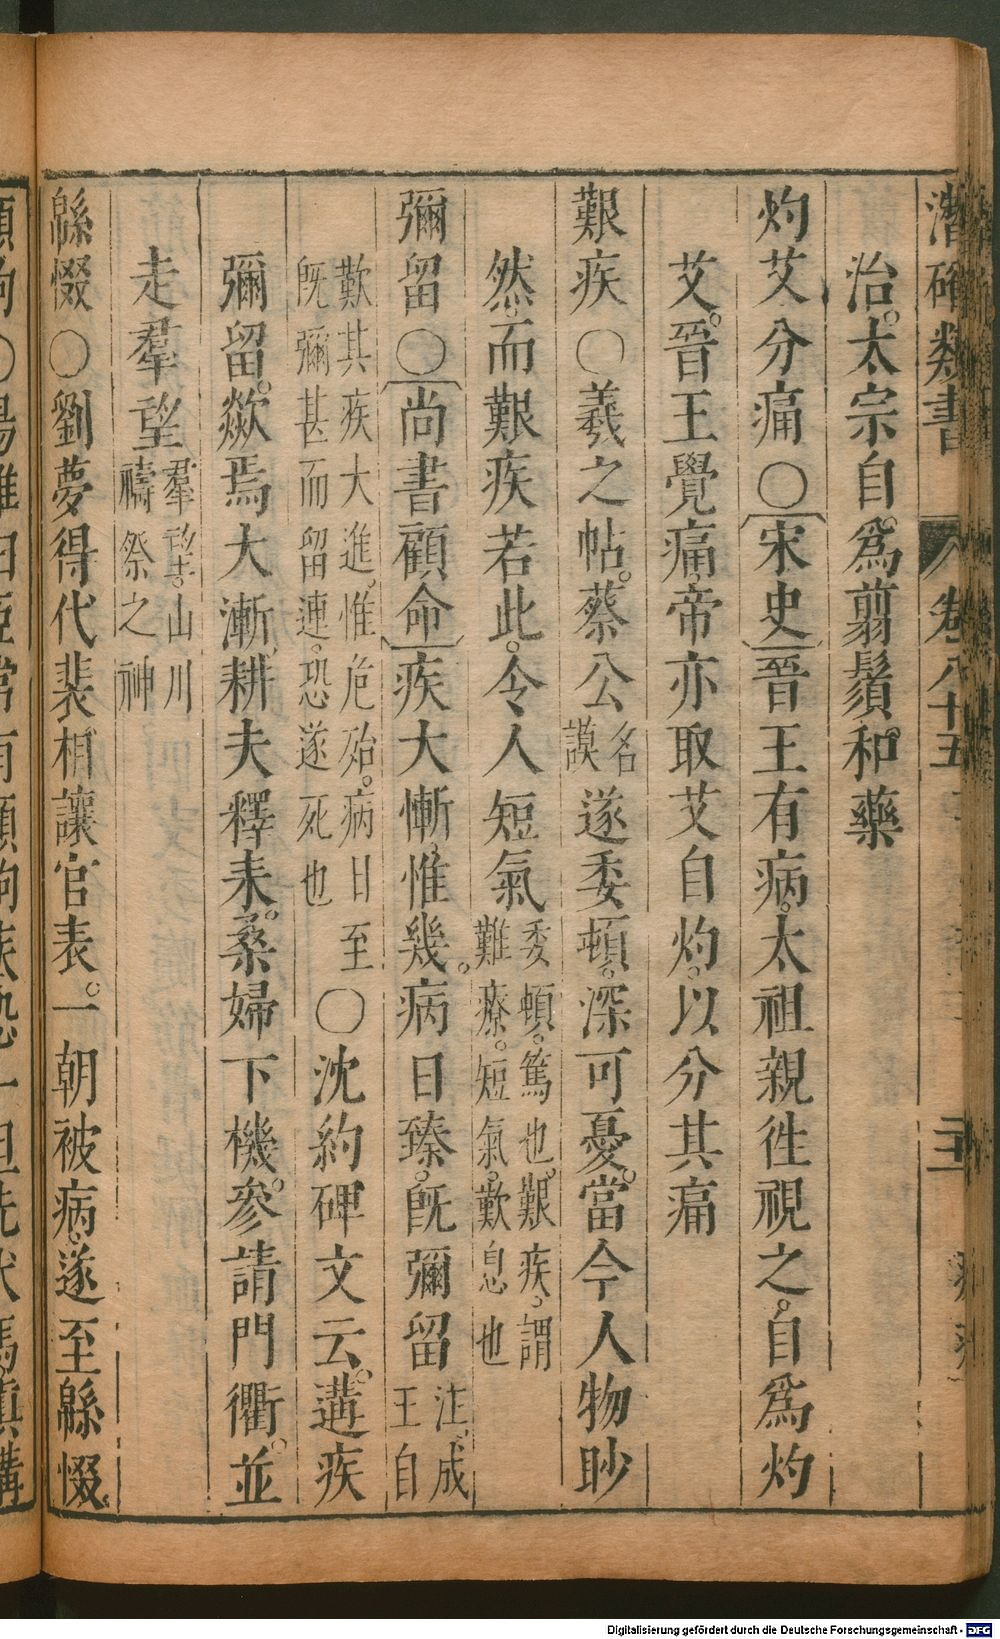 潛確類書 卷八十五 二十
治。太宗自爲剪鬚。和藥
灼艾分痛〇宋史晉王有病。太祖親徃視之。自爲灼
艾。晉王覺痛。帝亦取艾自灼。以分其痛
艱疾〇羲之帖。蔡公名謨遂委頓。深可憂。當今人物眇
然。而艱疾若此。令人短氣委頓。篤也。艱疾。謂難療。短氣。歎息也
彌留〇尚書顧命疾大慚。惟幾。病日臻。旣彌留注。成王自
歎其疾大進。惟危殆。病日至旣彌甚而留連。恐遂死也〇沈約碑文云。遘疾
彌留。歘焉大漸。耕夫釋耒。桑婦下機。參請門衢。並
走羣望羣望。山川禱祭之神
緜惙〇劉夢得代裴相讓官表。一朝被病。遂至緜惙。
Digitalisierung gefördert durch die Deutsche Forschungsgemeinschaft - DFG